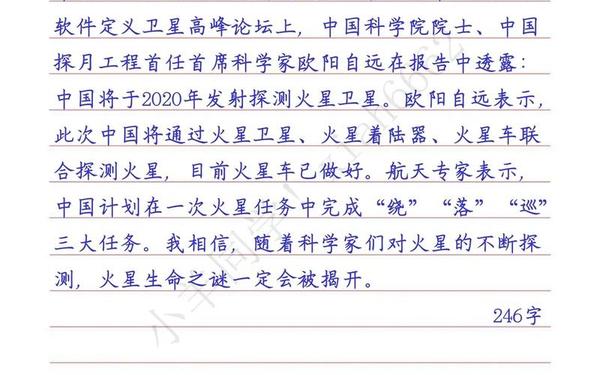 软件定义卫星高峰论坛上，中国科学院院士、中国
探月工程首任首席科学家欧阳自远在报告中透露：
中国将于2020年发射探测火星卫星。欧阳自远表示，
此次中国将通过火星卫星、火星着陆器、火星车联
合探测火星，目前火星车已做好。航天专家表示，
中国计划在一次火星任务中完成“绕”“落”“巡”
三大任务。我相信，随着科学家们对火星的不断探
测，火星生命之谜一定会被揭开。
246字